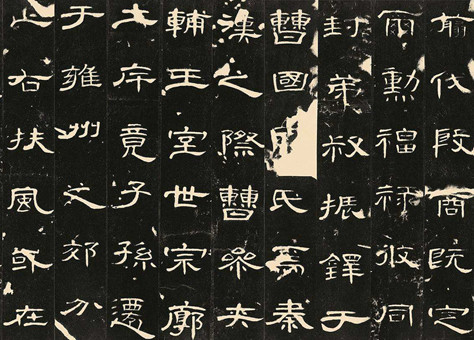 翦伐殷商既定
爾勳福祿攸同
封弟叔振鐸于
曹國因氏焉秦
漢之際曹參夾
輔王室世宗廓
土斥竟子孫遷
于雍州之郊分
止右扶風或在